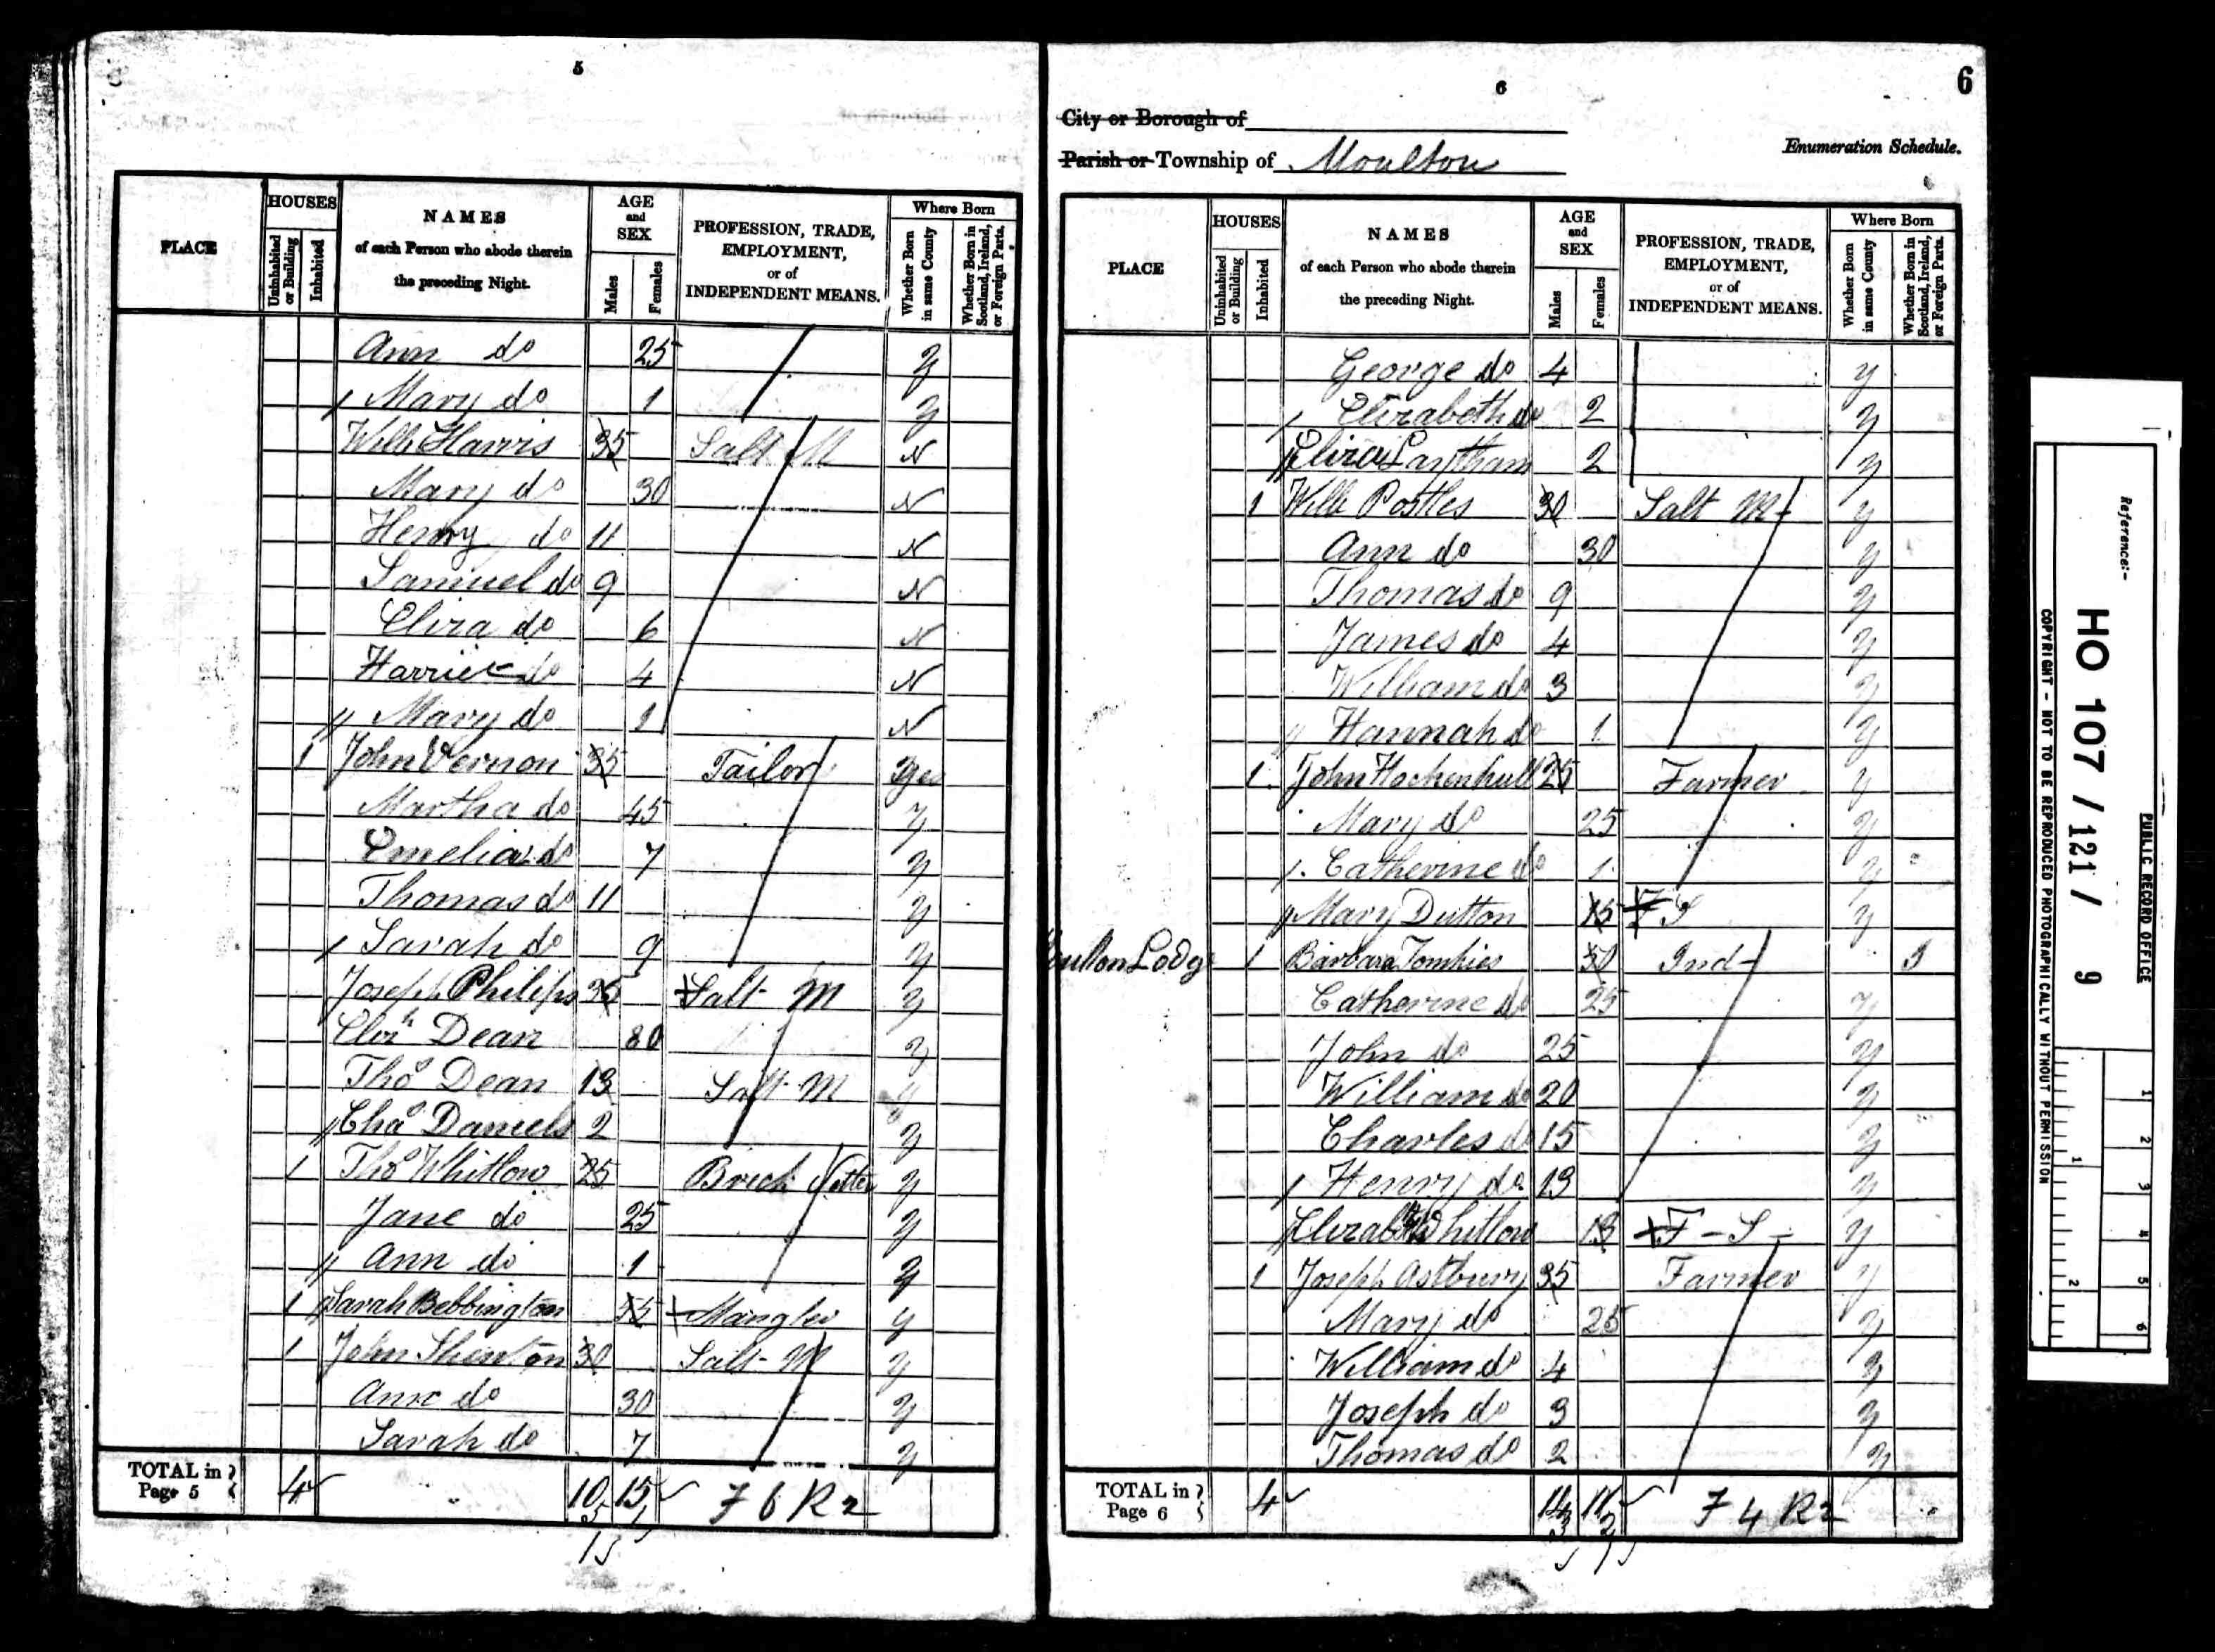 5
PLACE
HOUSES
Uninhabited or Building
Inhabited
NAMES
of each Person who abode therein
the preceding Night.
AGE
and
SEX
Males
Females
PROFESSION, TRADE,
EMPLOYMENT,
or of
INDEPENDENT MEANS.
Where Born
Whether Born in same County
Whether Born in Scotland, Ireland, or Foreign Parts.
Ann do 25 y
Mary do 1 y
Willm Harris 35 Salt M N
Mary do 30 N
Henry do 11 N
Samuel do 9 N
Eliza do 6 N
Harriet do 4 N
Mary do 1 N
1 John Vernon 35 Tailor Yes
Martha do 45 y
Emelia do 7 y
Thomas do 11 y
Sarah do 9 y
Joseph Philips 35 Salt M y
Elizh Dean 80 y
Thos Dean 13 Salt M y
Chas Daniels 2 y
1 Thos Whitlow 25 Brick Setter y
Jane do 25 y
Ann do 1 y
1 Sarah Bebbington 55 Mangler y
1 John Shenton 30 Salt M y
Ann do 30 y
Sarah do 7 y
TOTAL in Page 5 4 10 15 F 6 R 2
6
6
City or Borough of
Parish or Township of Moulton
Enumeration Schedule.
PLACE
HOUSES
Uninhabited or Building
Inhabited
NAMES
of each Person who abode therein
the preceding Night.
AGE
and
SEX
Males
Females
PROFESSION, TRADE,
EMPLOYMENT,
or of
INDEPENDENT MEANS.
Where Born
Whether Born in same County
Whether Born in Scotland, Ireland, or Foreign Parts.
George do 4 y
Elizabeth do 2 y
Eliza Lantham 2 y
1 Willm Postles 30 Salt M y
Ann do 30 y
Thomas do 9 y
James do 4 y
William do 3 y
Hannah do 1 y
1 John Hockenhull 25 Farmer y
Mary do 25 y
Catherine do 1 y
Mary Dutton 15 F S y
Moulton Lodge 1 Barbara Tomkies 50 Ind I
Catherine do 25 y
John do 25 y
William do 20 y
Charles do 15 y
Henry do 13 y
Elizabth Whitlow 13 F - S - y
1 Joseph Astbury 35 Farmer y
Mary do 25 y
William do 4 y
Joseph do 3 y
Thomas do 2 y
TOTAL in Page 6 4 14 11 F 4 R 2
Reference:-
HO 107 / 121 / 9
PUBLIC RECORD OFFICE
COPYRIGHT - NOT TO BE REPRODUCED PHOTOGRAPHICALLY WITHOUT PERMISSION
1 2 3 4 5 6
1 2